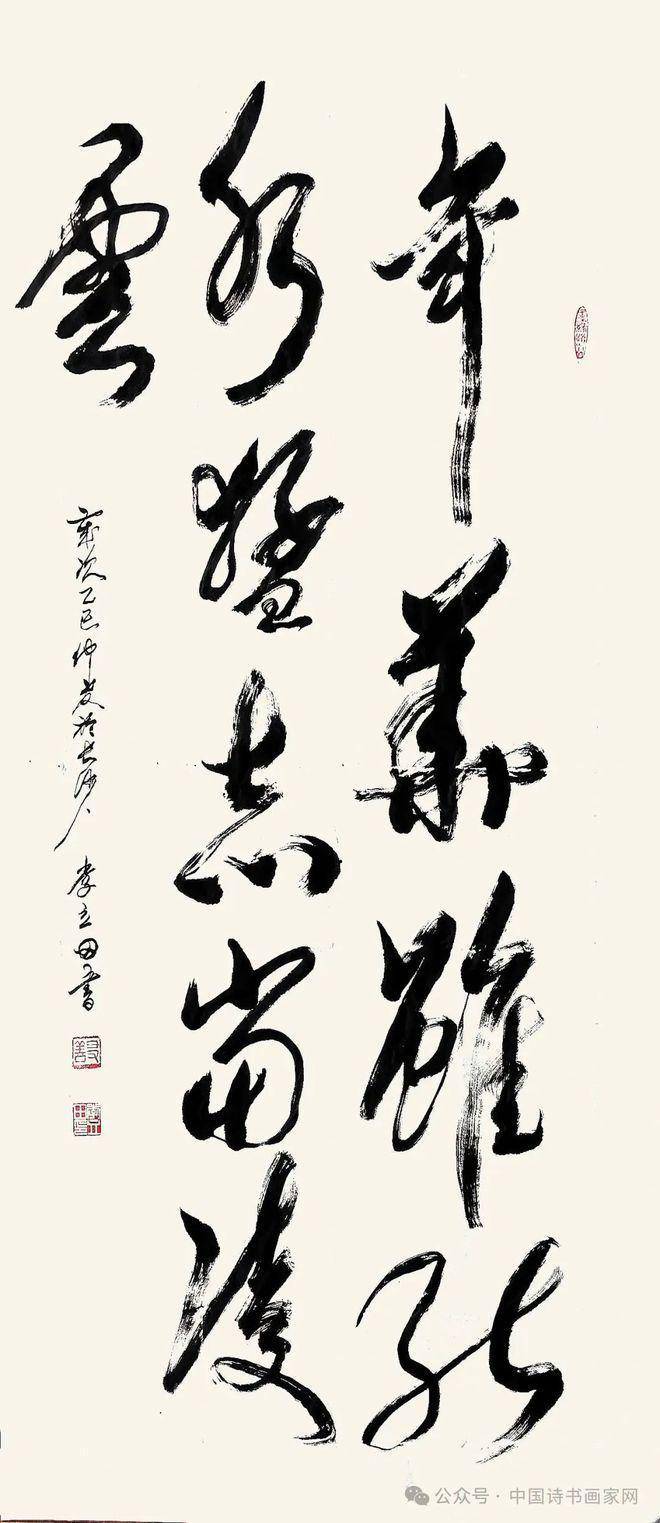 年華雖
猛志當凌
雲
歲次乙巳仲夏於長沙 李立田書
公众号·中国诗书画家网